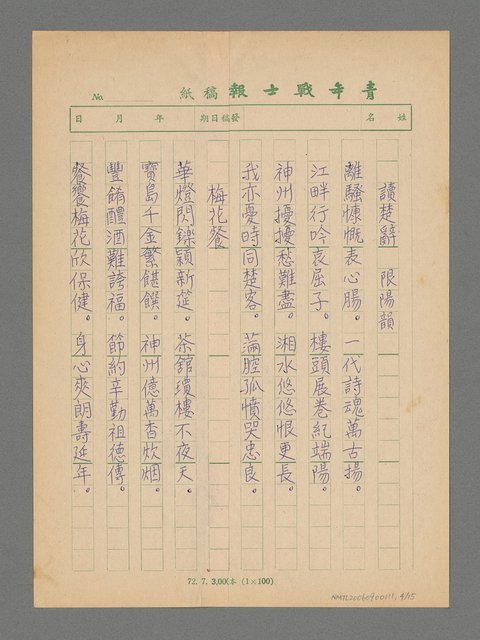 青年戰士報稿紙
No.
姓名 發稿日期 年 月 日
讀楚辭 限陽韻
離騷慷慨表心腸。一代詩魂萬古揚。
江畔行吟哀屈子。樓頭展卷紀端陽。
神州擾擾愁難盡。湘水悠悠恨更長。
我亦憂時同楚客。滿腔孤憤哭忠良。
梅花餐
華燈閃鑠穎新筵。茶館瓊樓不夜天。
寶島千金繁饌。神州億萬杳炊烟。
豐餚醴酒難誇福。節約辛勤祖德傳。
餐饗梅花欣保健。身心爽朗壽延年。
72.7.3,00本(1×100)
NMTL20060900111, 4/15